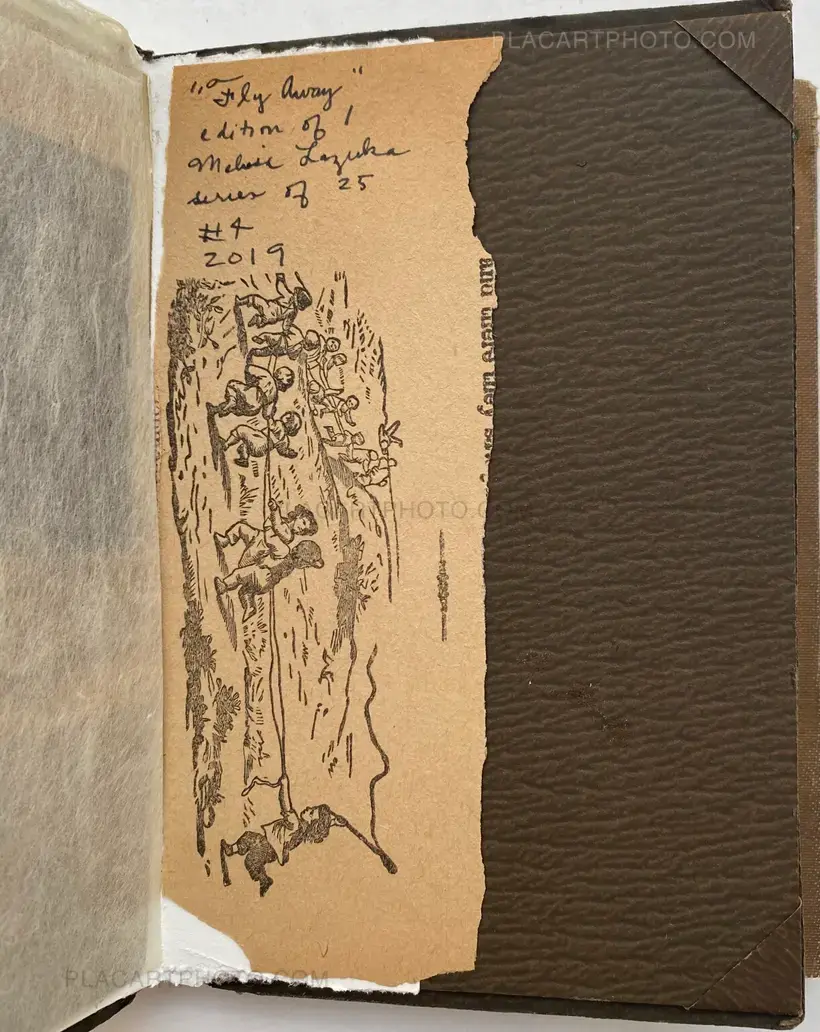 PLACARTPHOTO.COM
"Fly Away"
edition of 1
Melissa Lazuka
series of 25
#4
2019
and were they
PLACARTPHOTO.COM
PLACARTPHOTO.COM